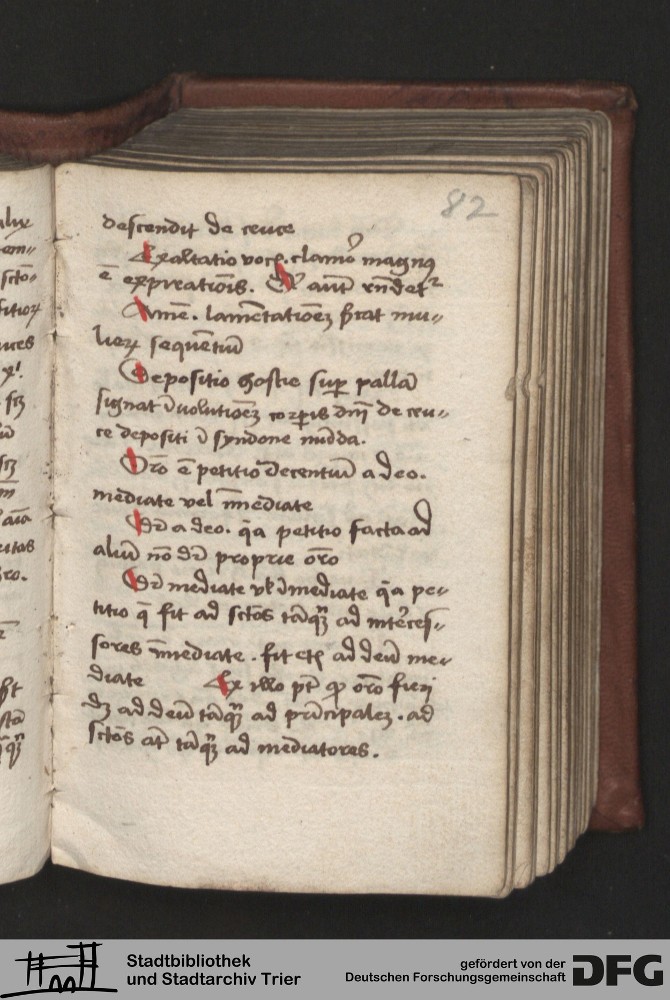 82
descendit de cruce
Exaltatio voc͛. clamor̉ magnꝯ
ē expirationis. Vl̉ aut̄ rn̄det̉
Amē. lamētationēʒ sīcat mu⸗
lierꝫ sequentiū
Depositio hostie sup̄ pallā
signat īvolutionēʒ corꝑis dn̄i de cru⸗
ce depositi ī syndone mūda.
Oro̅ ē petitio decentiū a deo.
mediate vel īmediate
Dr̄ a deo. q̄a petitio facta ad
aliū nō dr̄ proprie oro̅
Dr̄ mediate vl̉ īmediate q̄a pe⸗
titio q̄ fit ad sctōs tāqꝫ ad int̉cess⸗
sores īmediate. fit etꝫ ad deū me⸗
diate Ex illo pt̄ ꝙ oro̅ fieri
dꝫ ad deū tāqꝫ ad prīcipaleʒ. ad
sctōs at̄ tāqꝫ ad mediatores.
Stadtbibliothek
und Stadtarchiv Trier
gefördert von der
Deutschen Forschungsgemeinschaft
DFG